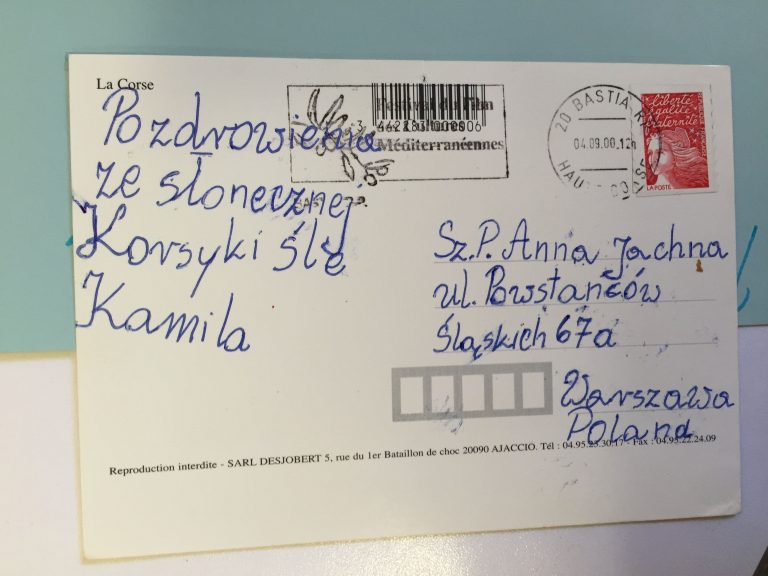 La Corse
Pozdrowienia
ze słonecznej
Korsyki śle
Kamila
Festival du Film
et Cultures
Méditerranéennes
3 442283 000006
20 BASTIA
04.09.00.12h
HAUTE CORSE
liberté
égalité
fraternité
LA POSTE
Sz.P. Anna Jachna
ul. Powstańców
Śląskich 67a
Warszawa
Poland
Reproduction interdite - SARL DESJOBERT 5, rue du 1er Bataillon de choc 20090 AJACCIO. Tél : 04.95.23.30.17 - Fax : 04.95.22.24.09